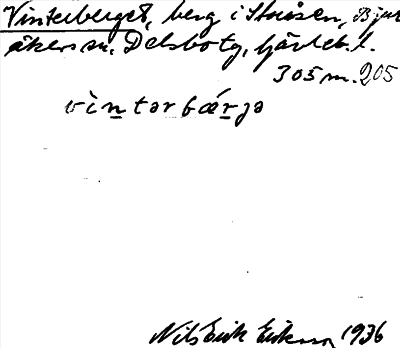 Vinterberget, berg i Stråsen, Bjur
åkers sn, Delsbo tg, Gävleb. l.
305 m. 205
vi̇̀n̲tərbǽr̲jə
Nils Erik Eriksson 1936